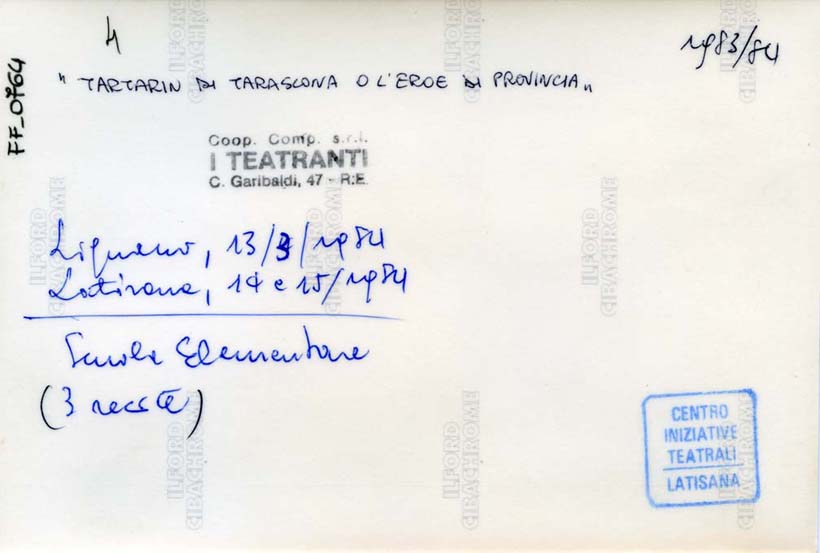 4
1983/84
FF_0764
"TARTARIN DI TARASCONA O L'EROE DI PROVINCIA"
Coop. Comp. s.r.l.
I TEATRANTI
C. Garibaldi, 47 - R.E.
Lignano, 13/3/1984
Latisana, 14 e 15/1984
Scuola Elementare
(3 recite)
CENTRO
INIZIATIVE
TEATRALI
LATISANA
ILFORD
CIBACHROME
ILFORD
CIBACHROME
ILFORD
CIBACHROME
ILFORD
CIBACHROME
ILFORD
CIBACHROME
ILFORD
CIBACHROME
ILFORD
CIBACHROME
ILFORD
CIBACHROME